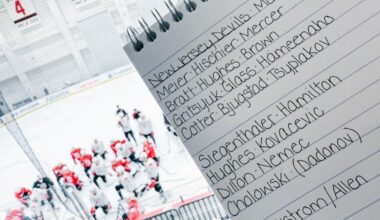 New Jersey Devils: Mo
Meier · Hischier · Mercer
Bratt · Hughes · Brown
Gritsyuk · Glass · Hameenaho
Cotter · Bjugstad · Tsyplakov
Siegenthaler · Hamilton
Hughes · Kovacevic
Dillon · Nemec
Cholowski · (Dadonov)
strom/Allen